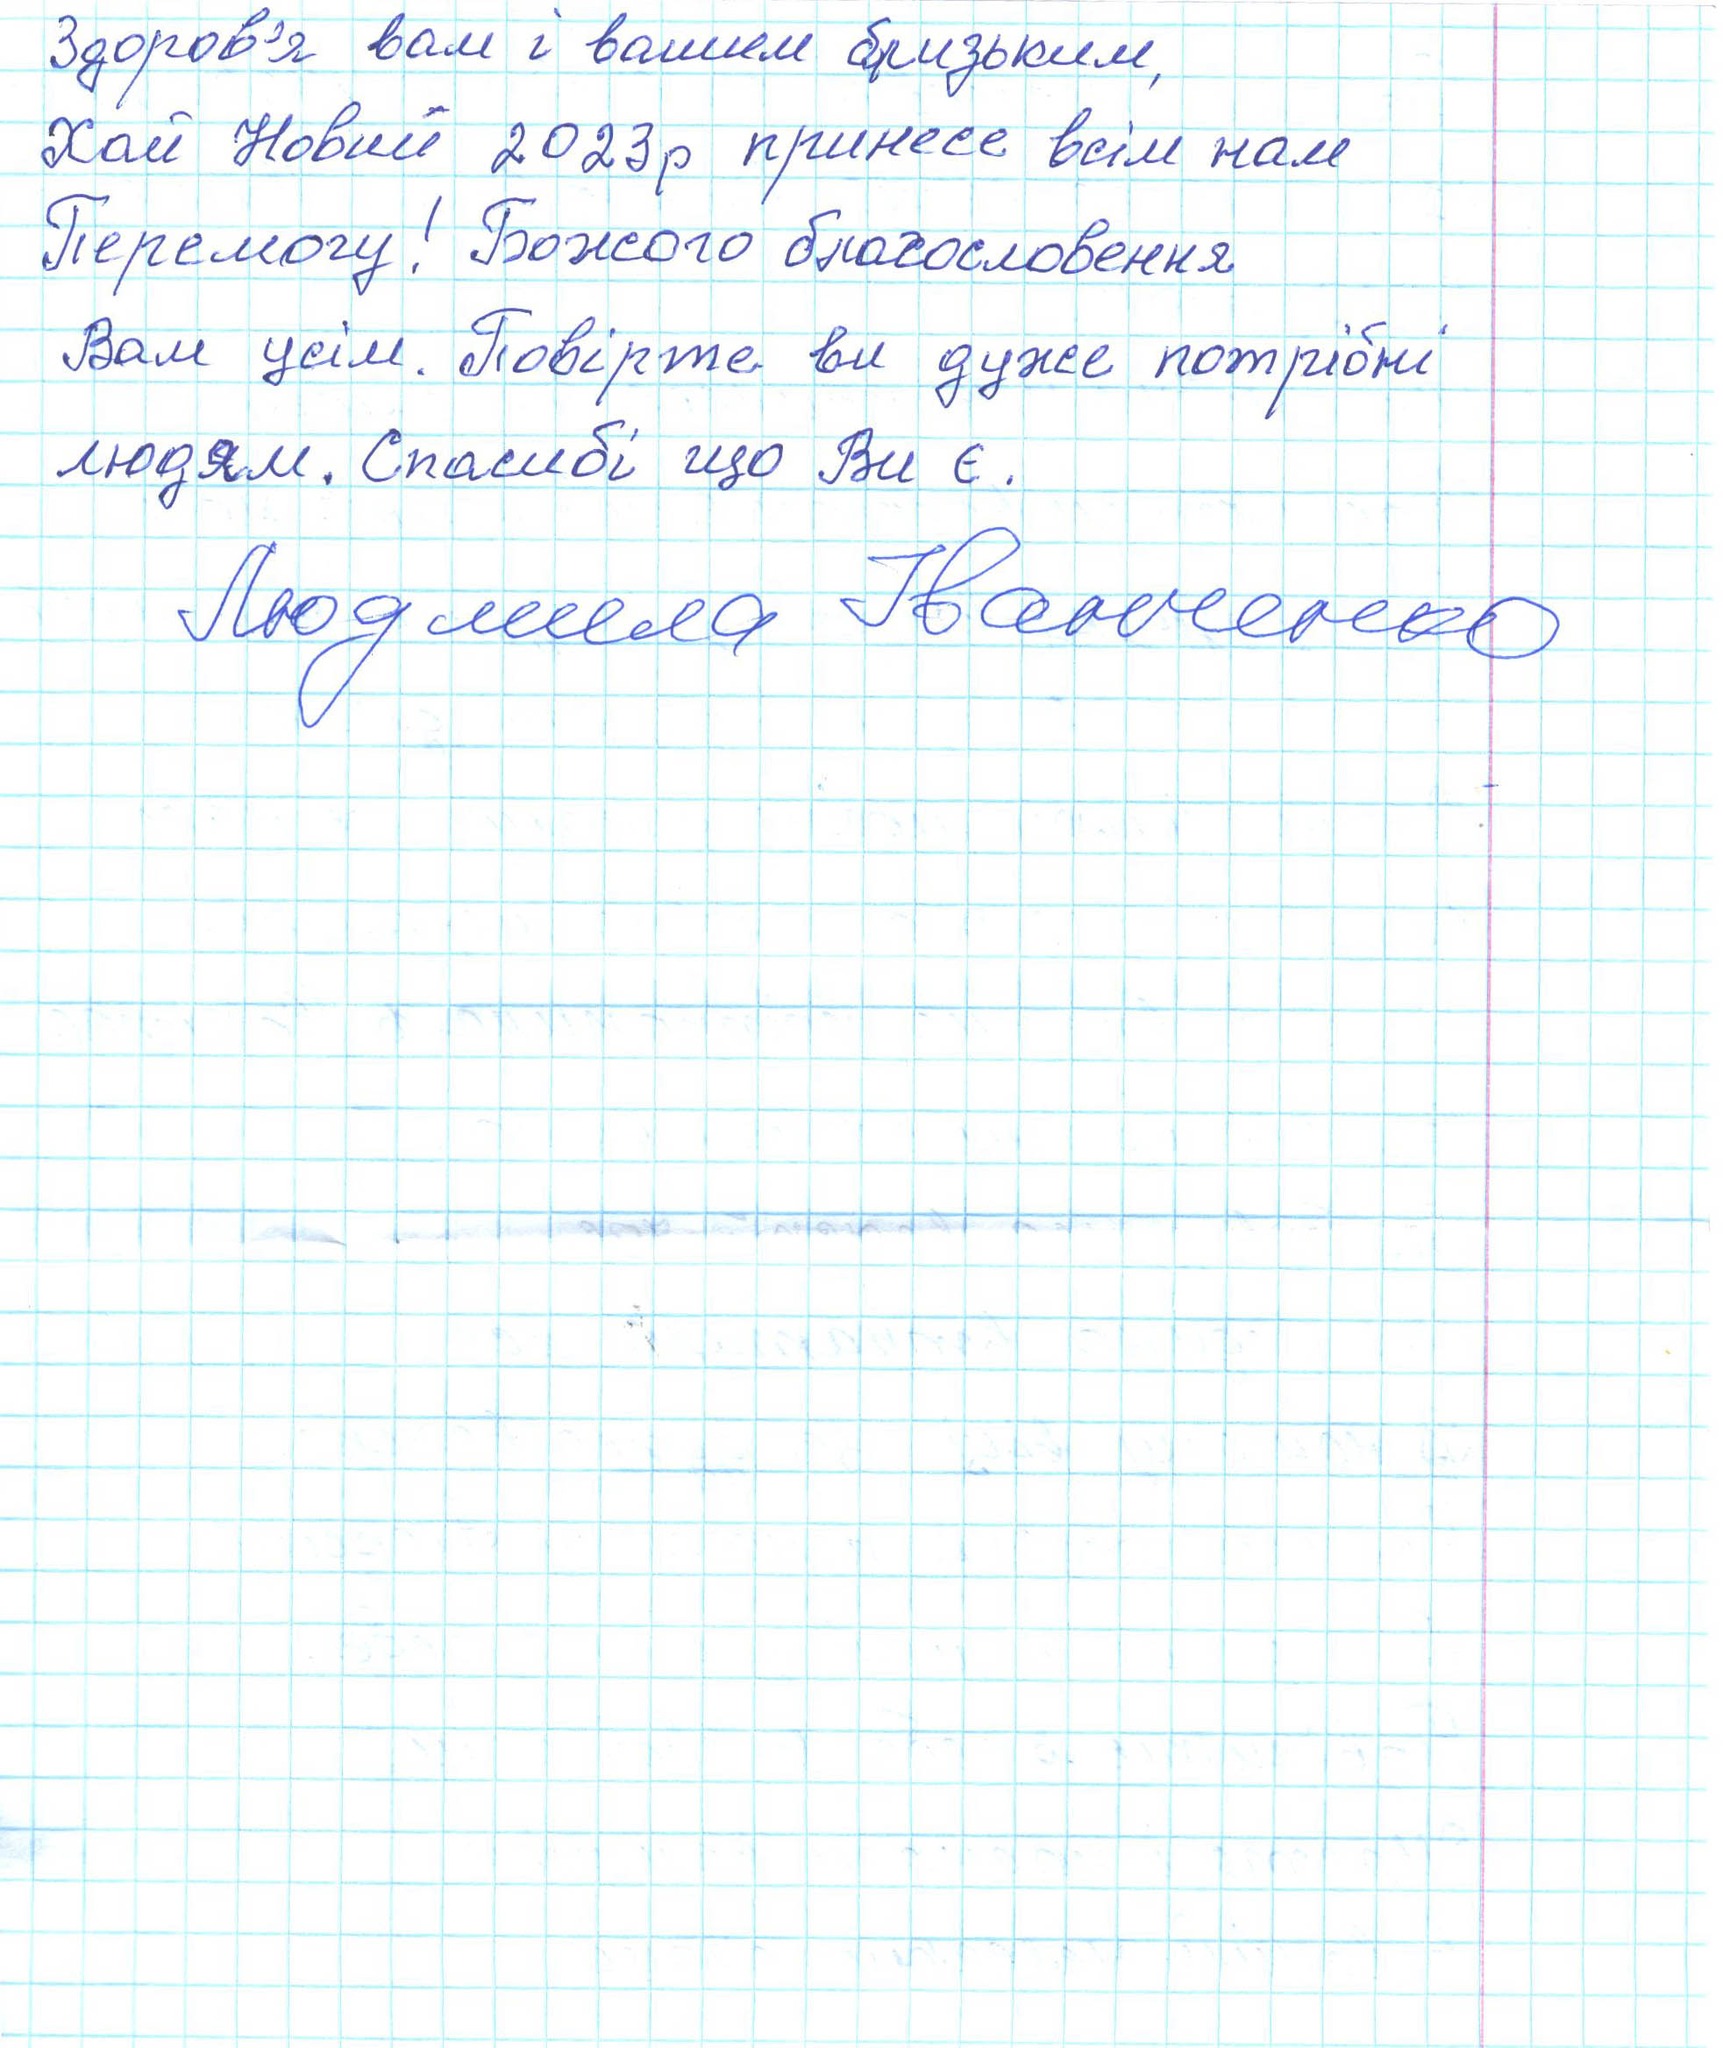 Здоров'я вам і вашим близьким,
Хай Новий 2023р принесе всім нам
Перемогу! Божого благословення
Вам усім. Повірте ви дуже потрібні
людям. Спасибі що Ви є.
Людмила Іванченко